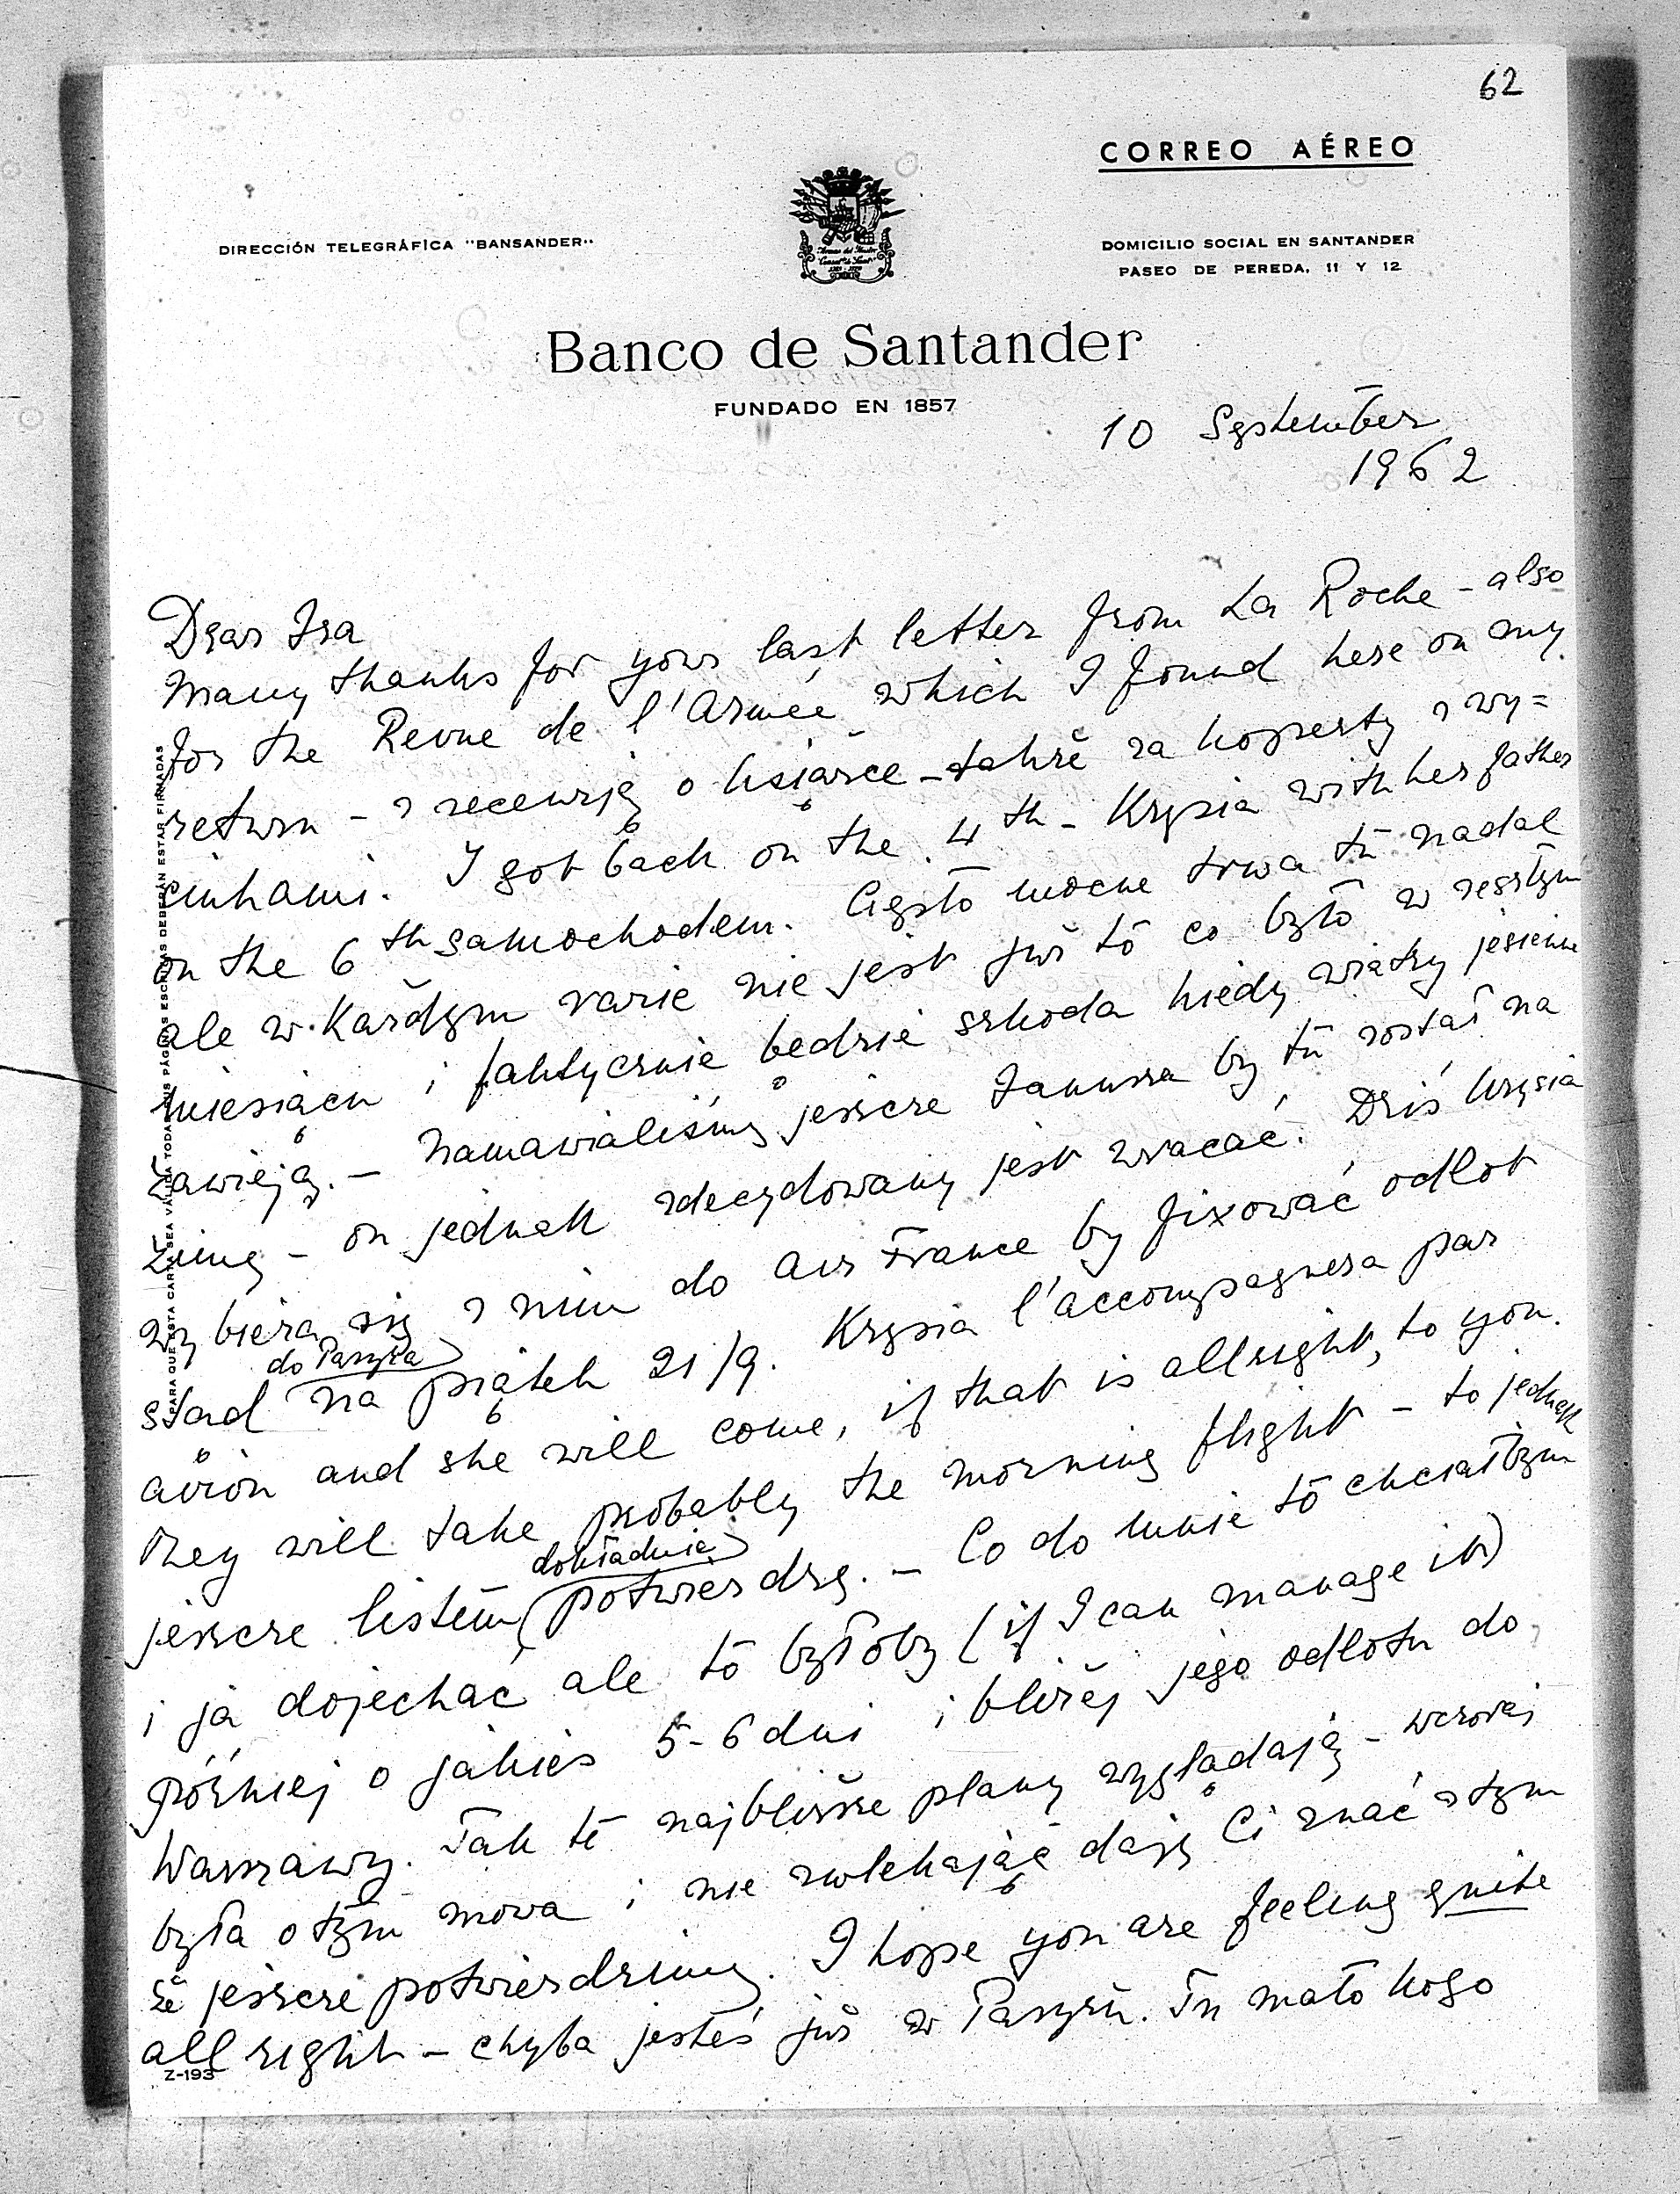 62
CORREO AÉREO
DIRECCIÓN TELEGRÁFICA "BANSANDER"
DOMICILIO SOCIAL EN SANTANDER
PASEO DE PEREDA, 11 Y 12
Banco de Santander
FUNDADO EN 1857
10 September
1962
Dear Isa
Many thanks for your last letter from La Roche - also
for the Revue de l'Armée which I found here on my
return - z recenzją o książce - także za koperty z wy=
cinkami. I got back on the 4th - Krysia with her father
on the 6th samochodem. Ciepło mocne trwa tu nadal
ale w każdym razie nie jest już to co było w zeszłym
miesiącu i faktycznie będzie szkoda kiedy wiatry jesienne
zawieją. - Namawialiśmy jeszcze Janusza by tu został na
zimę - on jednak zdecydowany jest wracać. Dziś Krysia
wybiera się z nim do Air France by fixować odlot
stąd do Paryża na piątek 21/9. Krysia l'accompagnera par
avion and she will come, if that is allright, to you.
They will take probably the morning flight - to jednak
jeszcze listem dokładnie potwierdzę. - Co do mnie to chciałbym
i ja dojechać ale to byłoby (if I can manage it)
później o jakieś 5-6 dni i bliżej jego odlotu do
Warszawy. Tak te najbliższe plany wyglądają - wczoraj
była o tym mowa i nie zwlekając daję Ci znać z tym
że jeszcze potwierdzimy. I hope you are feeling quite
all right - chyba jesteś już w Paryżu. Tu mało kogo
Z-193
PARA QUE ESTA CARTA SEA VÁLIDA TODAS SUS PÁGINAS ESCRITAS DEBERÁN ESTAR FIRMADAS